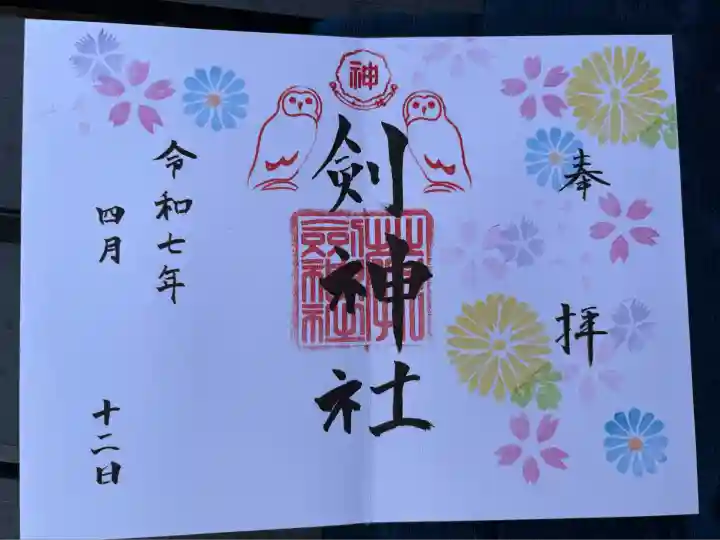 奉拝
神
剣神社
令和七年
四月
十二日